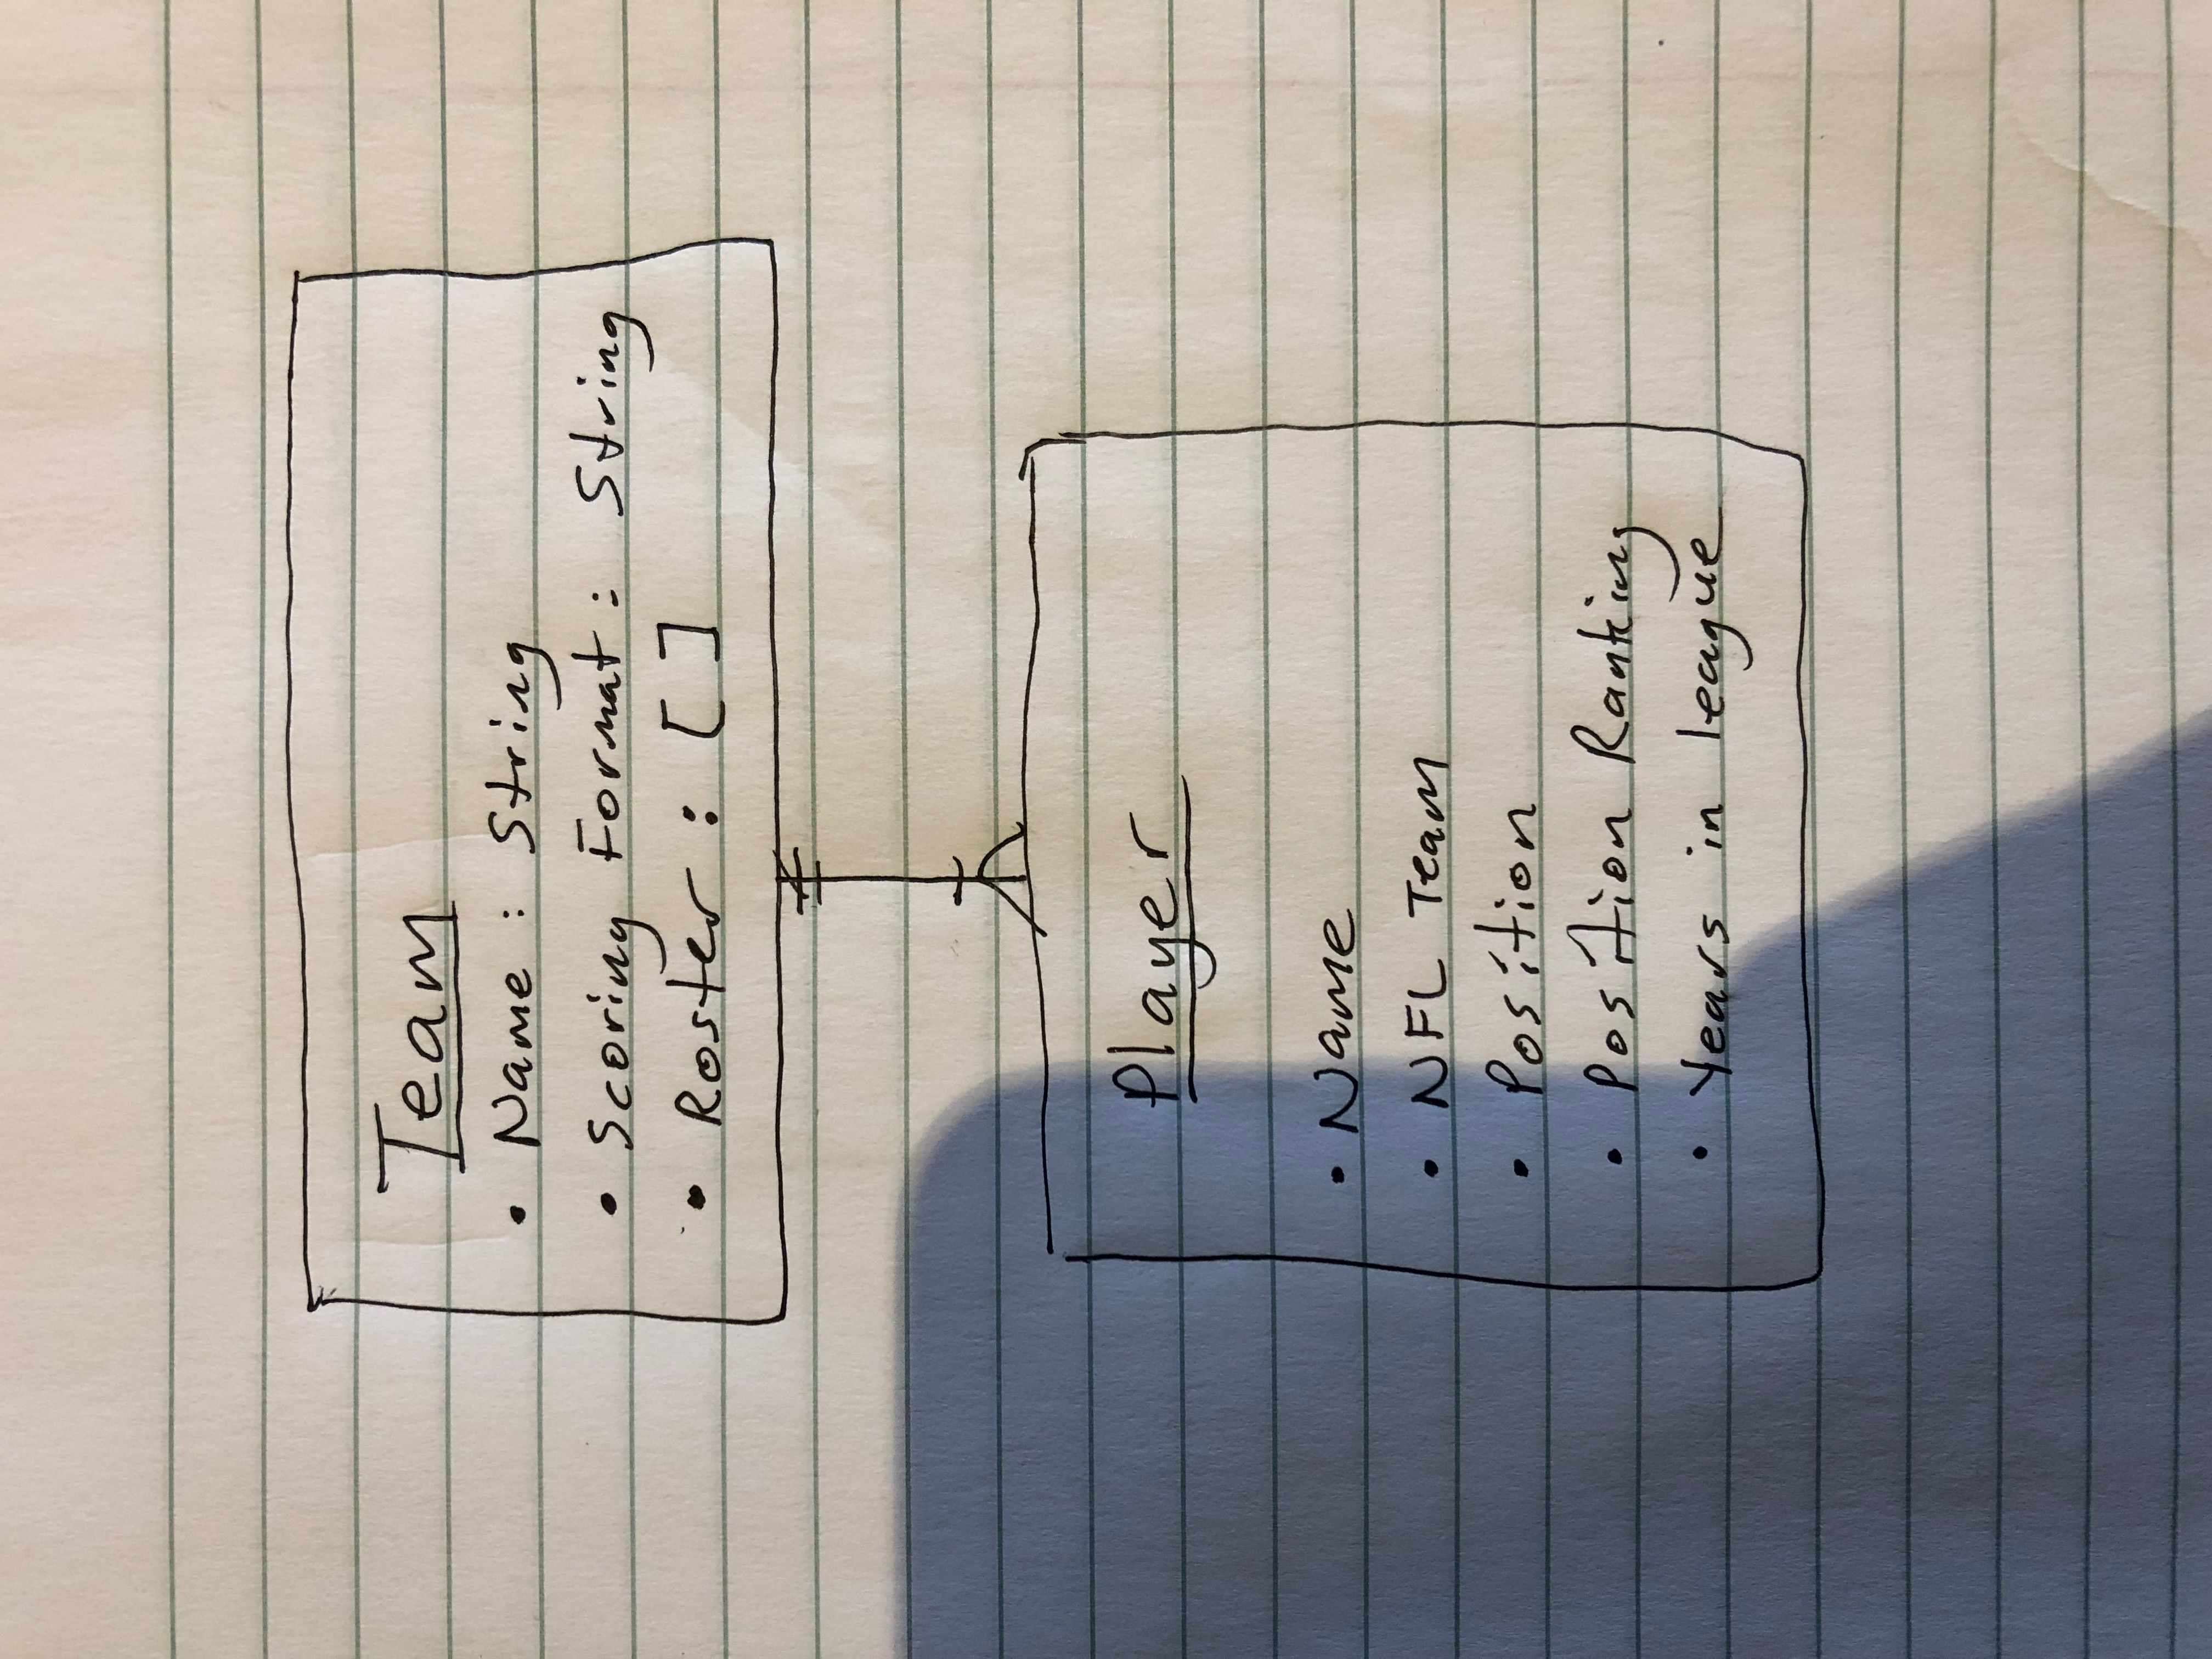 Team
• Name : String
• Scoring Format : String
• Roster : [ ]
Player
• Name
• NFL Team
• Position
• Position Ranking
• Years in league